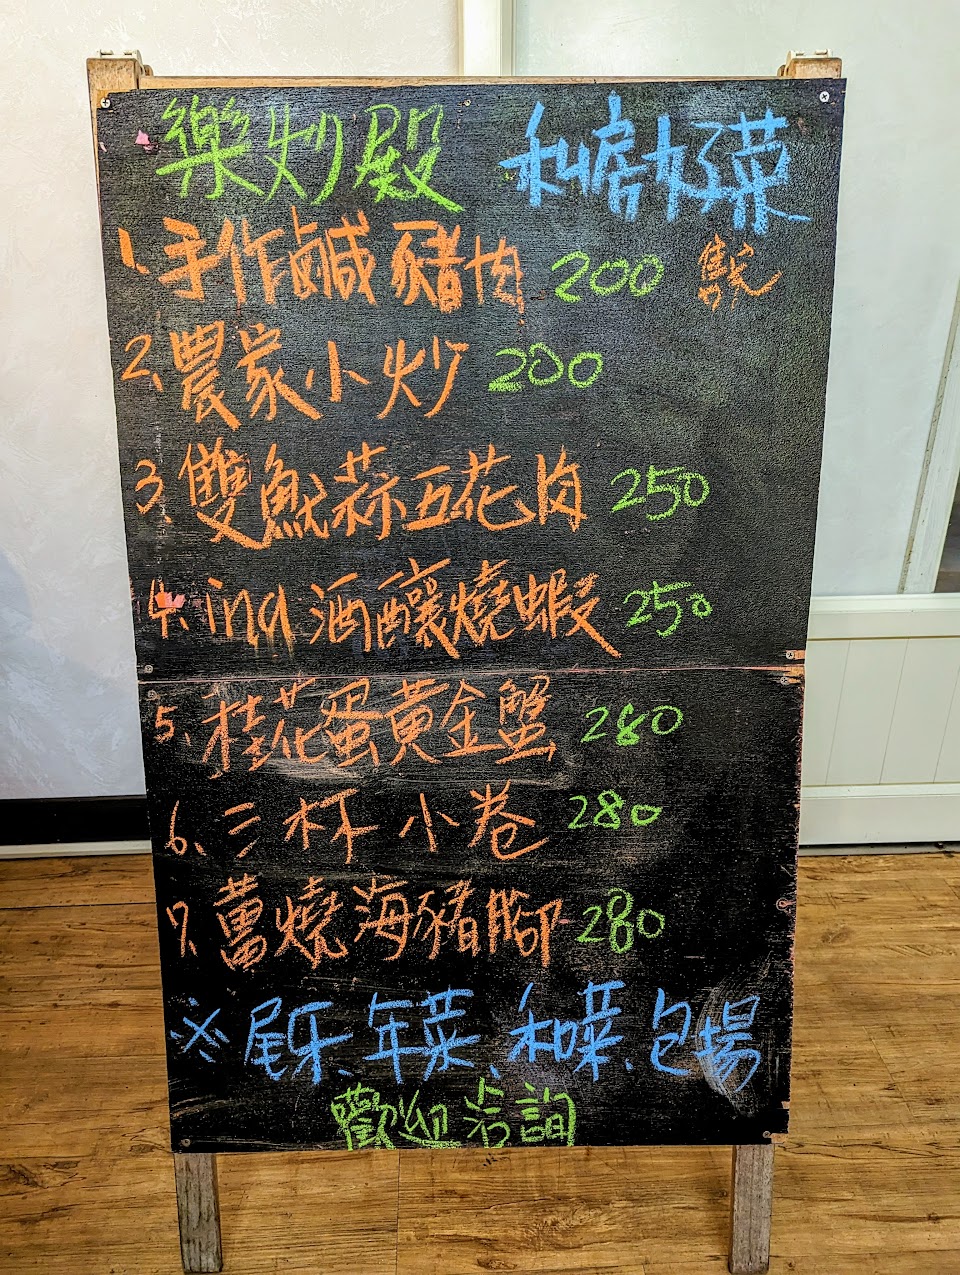 樂炒殿 私房好菜
1. 手作鹹豬肉 200 售完
2. 農家小炒 200
3. 雙魷蒜五花肉 250
4. ina酒釀燒蝦 250
5. 桂花蛋黃金蟹 280
6. 三杯小卷 280
7. 萬燒海豬腳 280
※尾牙、年菜、和菜、包場
歡迎洽詢